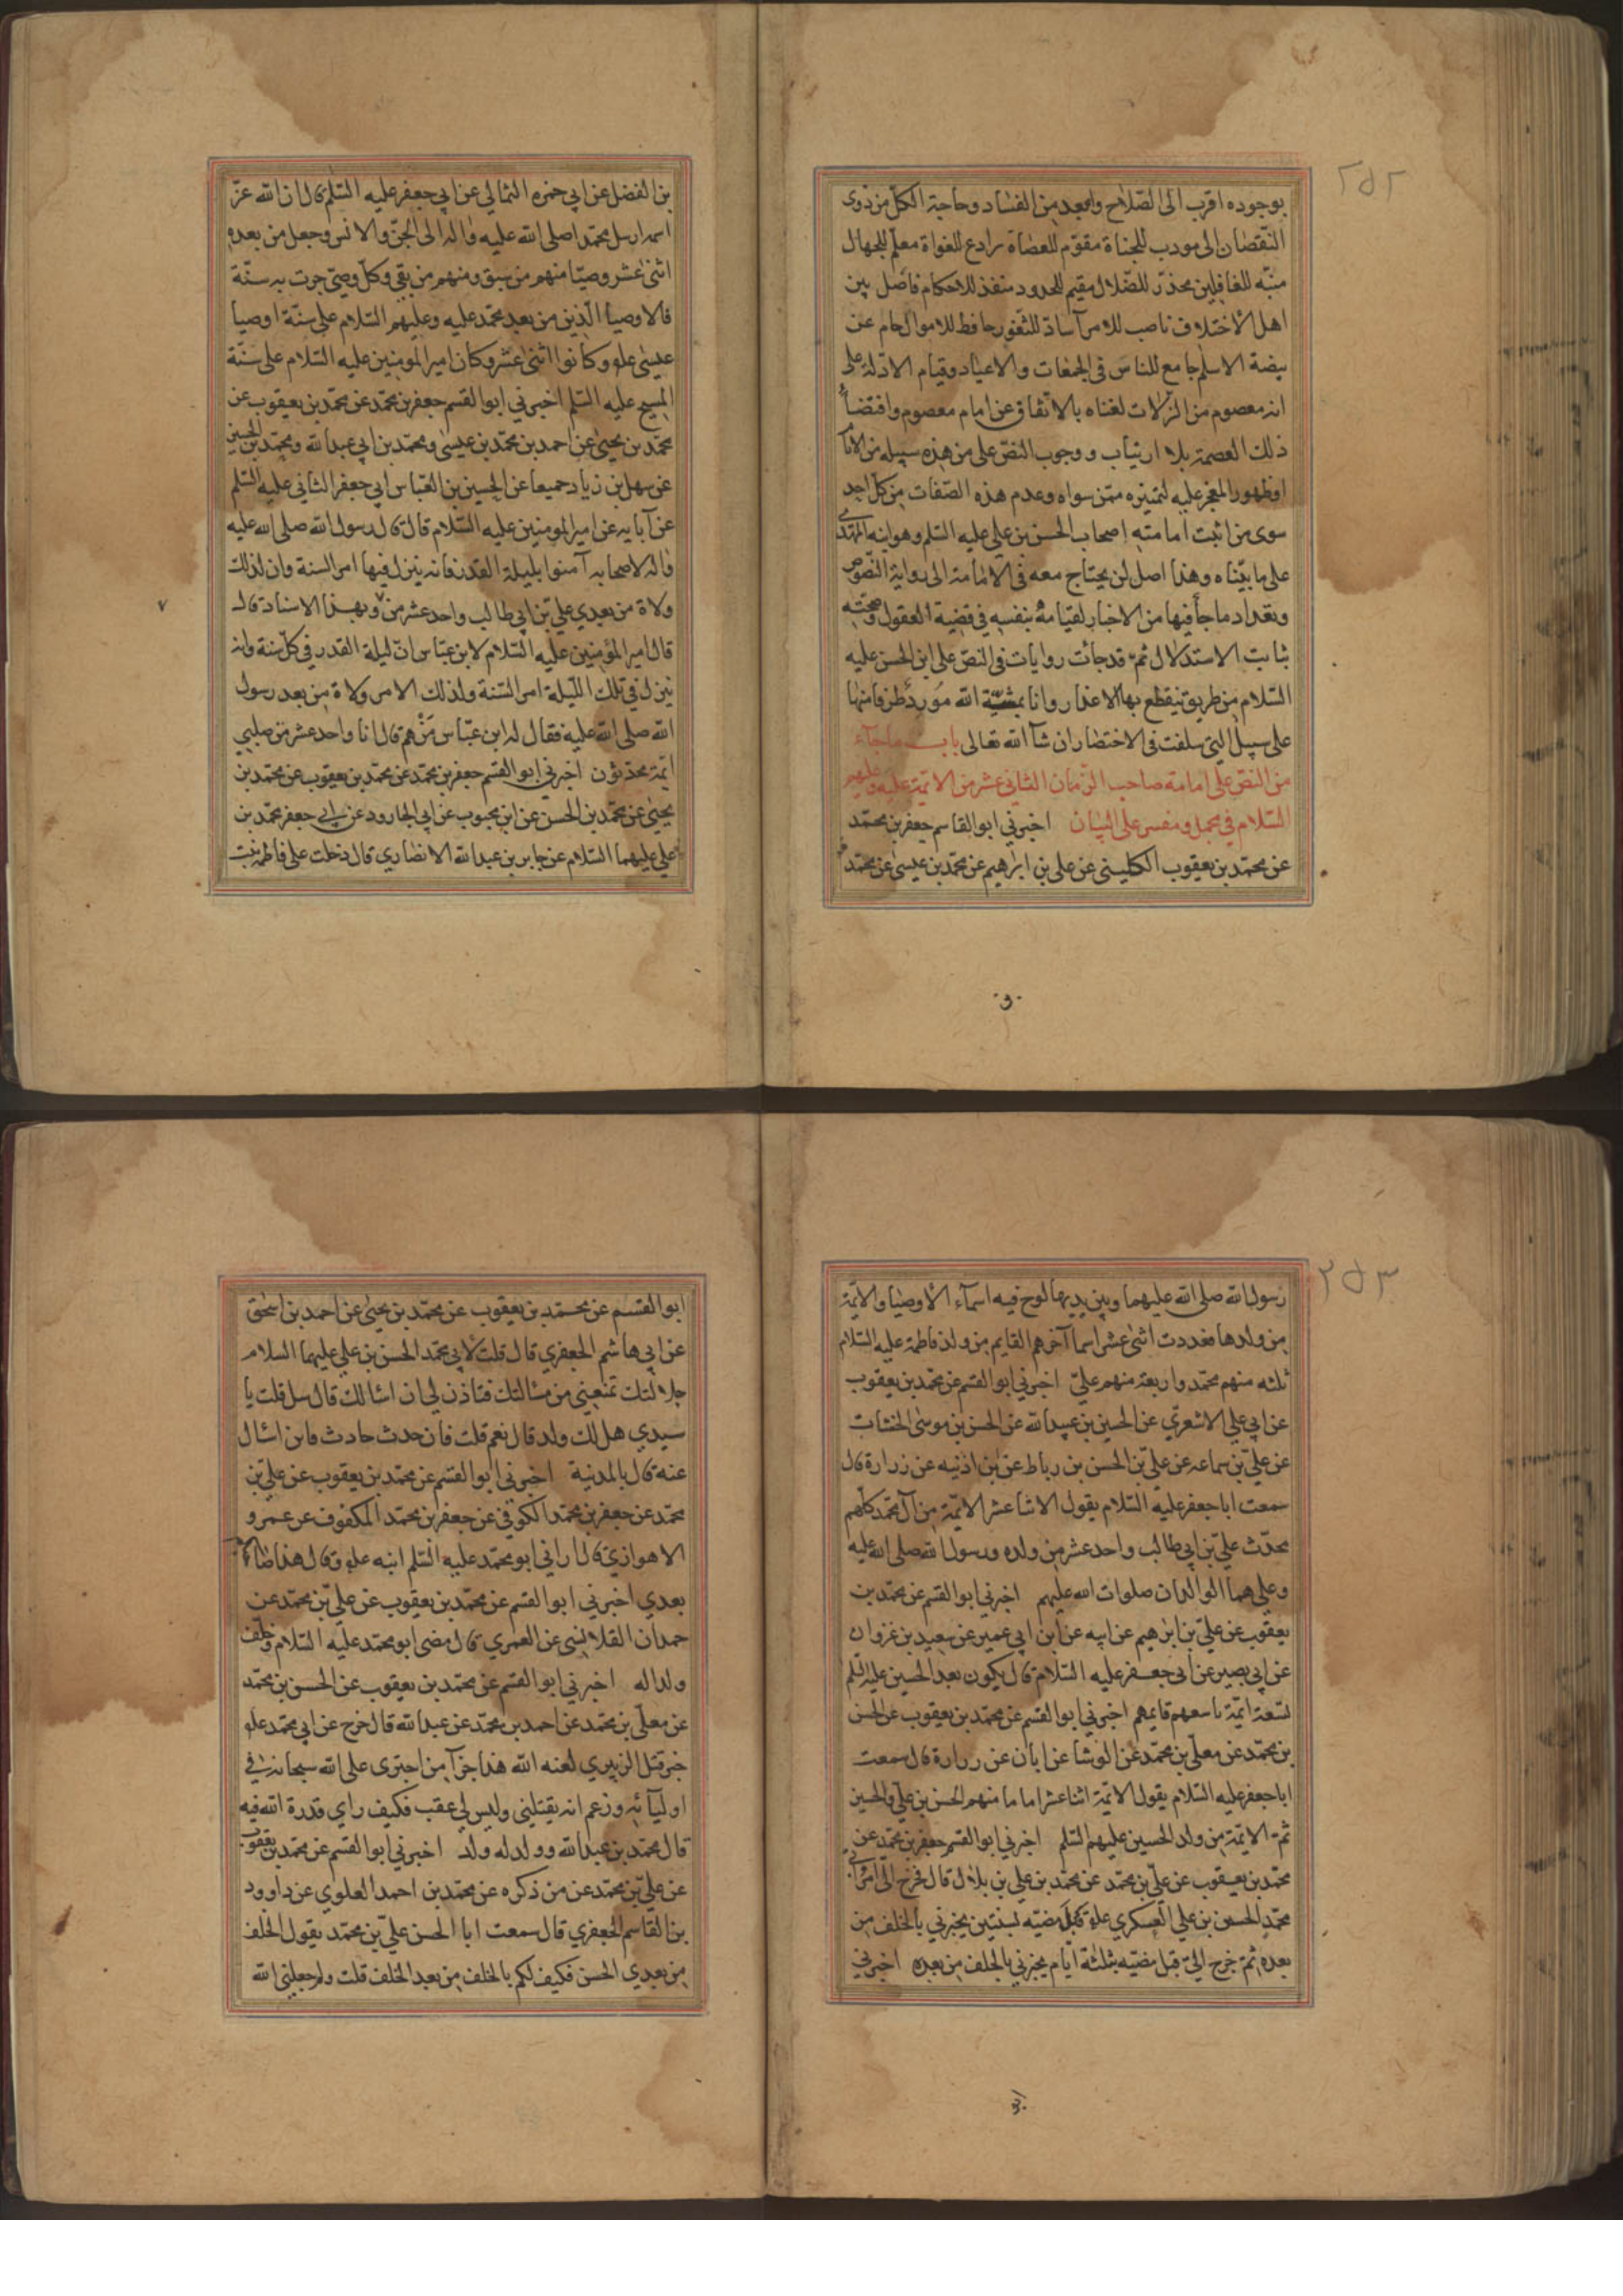 ٢٥٢
بوجوده اقرب الى الصّلاح وابعد من الفساد وحاجة الكلّ من ذوى
النّقصان الى مودب للجناة مقوّم للعصاة رادع للغواة معلّم للجهال
منبّه للغافلين محذّر للضّلال مقيم للحدود منفذ للاحكام فاصل بين
اهل الاختلاف ناصب للامرآ سادّ للثّغور حافظ للاموال حام عن
بيضة الاسلم جامع للناس فى الجمعات والاعياد وقيام الادلّة على
انه معصوم من الزّلات لغناه بالاتّفاق عن امام معصوم واقتضآء
ذلك العصمة بلا ارتياب ووجوب النصّ على من هذه سبيله من الانآ
اوظهور المعجز عليه لتميزه ممّن سواه وعدم هذه الصّفات من كلّ احد
سوى من اثبت امامته اصحاب الحسن بن علي عليه السّلم وهو ابنه المهتدى
على ما بيّناه وهذا اصل لن يحتاج معه فى الامامة الى رواية النّصوص
وتعداد ما جآ فيها من الاخبار لقيامه بنفسه في قضية العقول وصحّته
بثابت الاستدلال ثمّ قد جائت روايات فى النصّ على ابن الحسن عليه
السّلام من طريق ينقطع بها الاعذار وانا بمشيّة الله مورد طرفا منها
على سبيل التي سلفت فى الاختصار ان شآ الله تعالى باب ماجآء
من النصّ على امامة صاحب الزّمان الثانى عشر من الائمّة عليه وعليهم
السّلام في مجمل ومفسر على البيان اخبرني ابوالقاسم جعفر بن محمّد
عن محمّد بن يعقوب الكلينى عن على بن ابرهيم عن محمّد بن عيسى عن محمّد
بن الفضل عن ابي حمزه الثمالي عن ابي جعفر عليه السّلم قال ان الله عزّ
اسمه ارسل محمّدا صلى الله عليه واله الى الجنّ والانس وجعل من بعده
اثنى عشر وصيّا منهم من سبق ومنهم من بقى وكلّ وصيّ جرت به سنّة
فالاوصيآ الّذين من بعد محمّد عليه وعليهم السّلام على سنّة اوصيا
عيسى علو وكانوا اثنى عشر وكان امير المومنين عليه السّلام على سنّة
المسيح عليه السّلم اخبرني ابوالقسم جعفر بن محمّد عن محمّد بن يعقوب عن
محمّد بن يحيى عن احمد بن محمّد بن عيسى ومحمّد بن ابي عبد الله ومحمّد بن الحسين
عن سهل بن زياد جميعا عن الحسين بن العبّاس ابي جعفر الثانى عليه السّلم
عن آبايه عن امير المومنين عليه السّلام قال قال رسول الله صلى الله عليه
واله لاصحابه آمنوا بليلة القدر فانه ينزل فيها امر السنة وان لذلك
ولاة من بعدي علي بن ابي طالب واحد عشر من وبهذا الاسناد قال
٧
قال امير المؤمنين عليه السّلام لابن عبّاس انّ ليلة القدر في كلّ سنة وانه
ينزل في تلك اللّيلة امر السّنة ولذلك الامر ولاة من بعد رسول
الله صلى الله عليه فقال له ابن عبّاس مَنْ هم قال انا واحد عشر من صلبي
ائمّة محدّثون اخبرني ابوالقسم جعفر بن محمّد عن محمّد بن يعقوب عن محمّد بن
يحيى عن محمّد بن الحسن عن ابن محبوب عن ابي الجارود عن ابي جعفر محمّد بن
علي عليهما السّلام عن جابر بن عبد الله الانصاري قال دخلت على فاطمة بنت
٢٥٣
رسول الله صلى الله عليهما وبين يديها لوح فيه اسمآء الاوصيا والائمّة
من ولدها فعددت اثنى عشر اسما آخرهم القايم من ولد فاطمة عليه السّلام
ثلثه منهم محمّد واربعة منهم عليّ اخبرني ابوالقسم عن محمّد بن يعقوب
عن ابي علي الاشعرّي عن الحسين بن عبيد الله عن الحسن بن موسى الخشاب
عن عليّ بن سماعه عن عليّ بن الحسن بن رباط عن بن اذنيه عن زرارة قال
سمعت اباجعفر عليه السّلام يقول الاثنا عشر الائمّة من آل محمّد كلّهم
محدّث عليّ بن ابي طالب واحد عشر من ولده ورسول الله صلى الله عليه
وعلي هما الوالدان صلوات الله عليهم اخبرني ابوالقسم عن محمّد بن
يعقوب عن عليّ بن ابرهيم عن ابيه عن ابن ابي عمير عن سعيد بن غزوان
عن ابي بصير عن ابي جعفر عليه السّلام قال يكون بعد الحسين عليه السّلم
تسعة ائمّة تاسعهم قايمهم اخبرني ابوالقسم عن محمّد بن يعقوب عن الحسن
بن محمّد عن معلّى بن محمّد عن الوشا عن ابان عن زرارة قال سمعت
اباجعفر عليه السّلام يقول الائمّة اثنا عشر اماما منهم الحسن بن علي والحسين
ثمّ الائمّة من ولد الحسين عليهم السّلم اخبرني ابوالقسم جعفر بن محمّد عن
محمّد بن يعقوب عن عليّ بن محمّد عن محمّد بن علي بن بلال قال خرج الىّ امر ابي
محمّد الحسن بن علي العسكري علو قبل مضيّه بسنتين يخبرني بالخلف من
بعده ثمّ خرج اليّ قبل مضيّه بثلثة ايّام يخبرني بالخلف من بعده اخبرني
ابوالقسم عن محمّد بن يعقوب عن محمّد بن يحيى عن احمد بن اسحق
عن ابي هاشم الجعفري قال قلت لابي محمّد الحسن بن علي عليهما السلام
جلالتك تمنعني من مسالتك فتاذن لي ان اسالك قال سل قلت يا
سيدي هل لك ولد قال نعم قلت فان حدث حادث فاين اسال
عنه قال بالمدنية اخبرنى ابوالقسم عن محمّد بن يعقوب عن عليّ بن
محمّد عن جعفر بن محمّد الكوفي عن جعفر بن محمّد المكفوف عن عمرو
الاهوازي قال اراني ابومحمّد عليه السّلم ابنه علو وقال هذا صاحبكم
بعدي اخبرني ابوالقسم عن محمّد بن يعقوب عن عليّ بن محمّد عن
حمدان القلانسى عن العمري قال مضى ابومحمّد عليه السّلام وخلّف
ولدا له اخبرني ابوالقسم عن محمّد بن يعقوب عن الحسن بن محمّد
عن معلّى بن محمّد عن احمد بن محمّد عن عبد الله قال خرج عن ابي محمّد علو
خبر قتل الزبيري لعنه الله هذا جزآ من اجترى على الله سبحانه في
اوليآئه وزعم انه يقتلني وليس لي عقب فكيف راي قدرة الله فيه
قال محمّد بن عبد الله وولد له ولد اخبرني ابوالقسم عن محمّد بن يعقوب
عن عليّ بن محمّد عن من ذكره عن محمّد بن احمد العلوي عن داوود
بن القاسم الجعفري قال سمعت ابا الحسن عليّ بن محمّد يقول الخلف
من بعدي الحسن فكيف لكم بالخلف من بعد الخلف قلت ولم جعلني الله